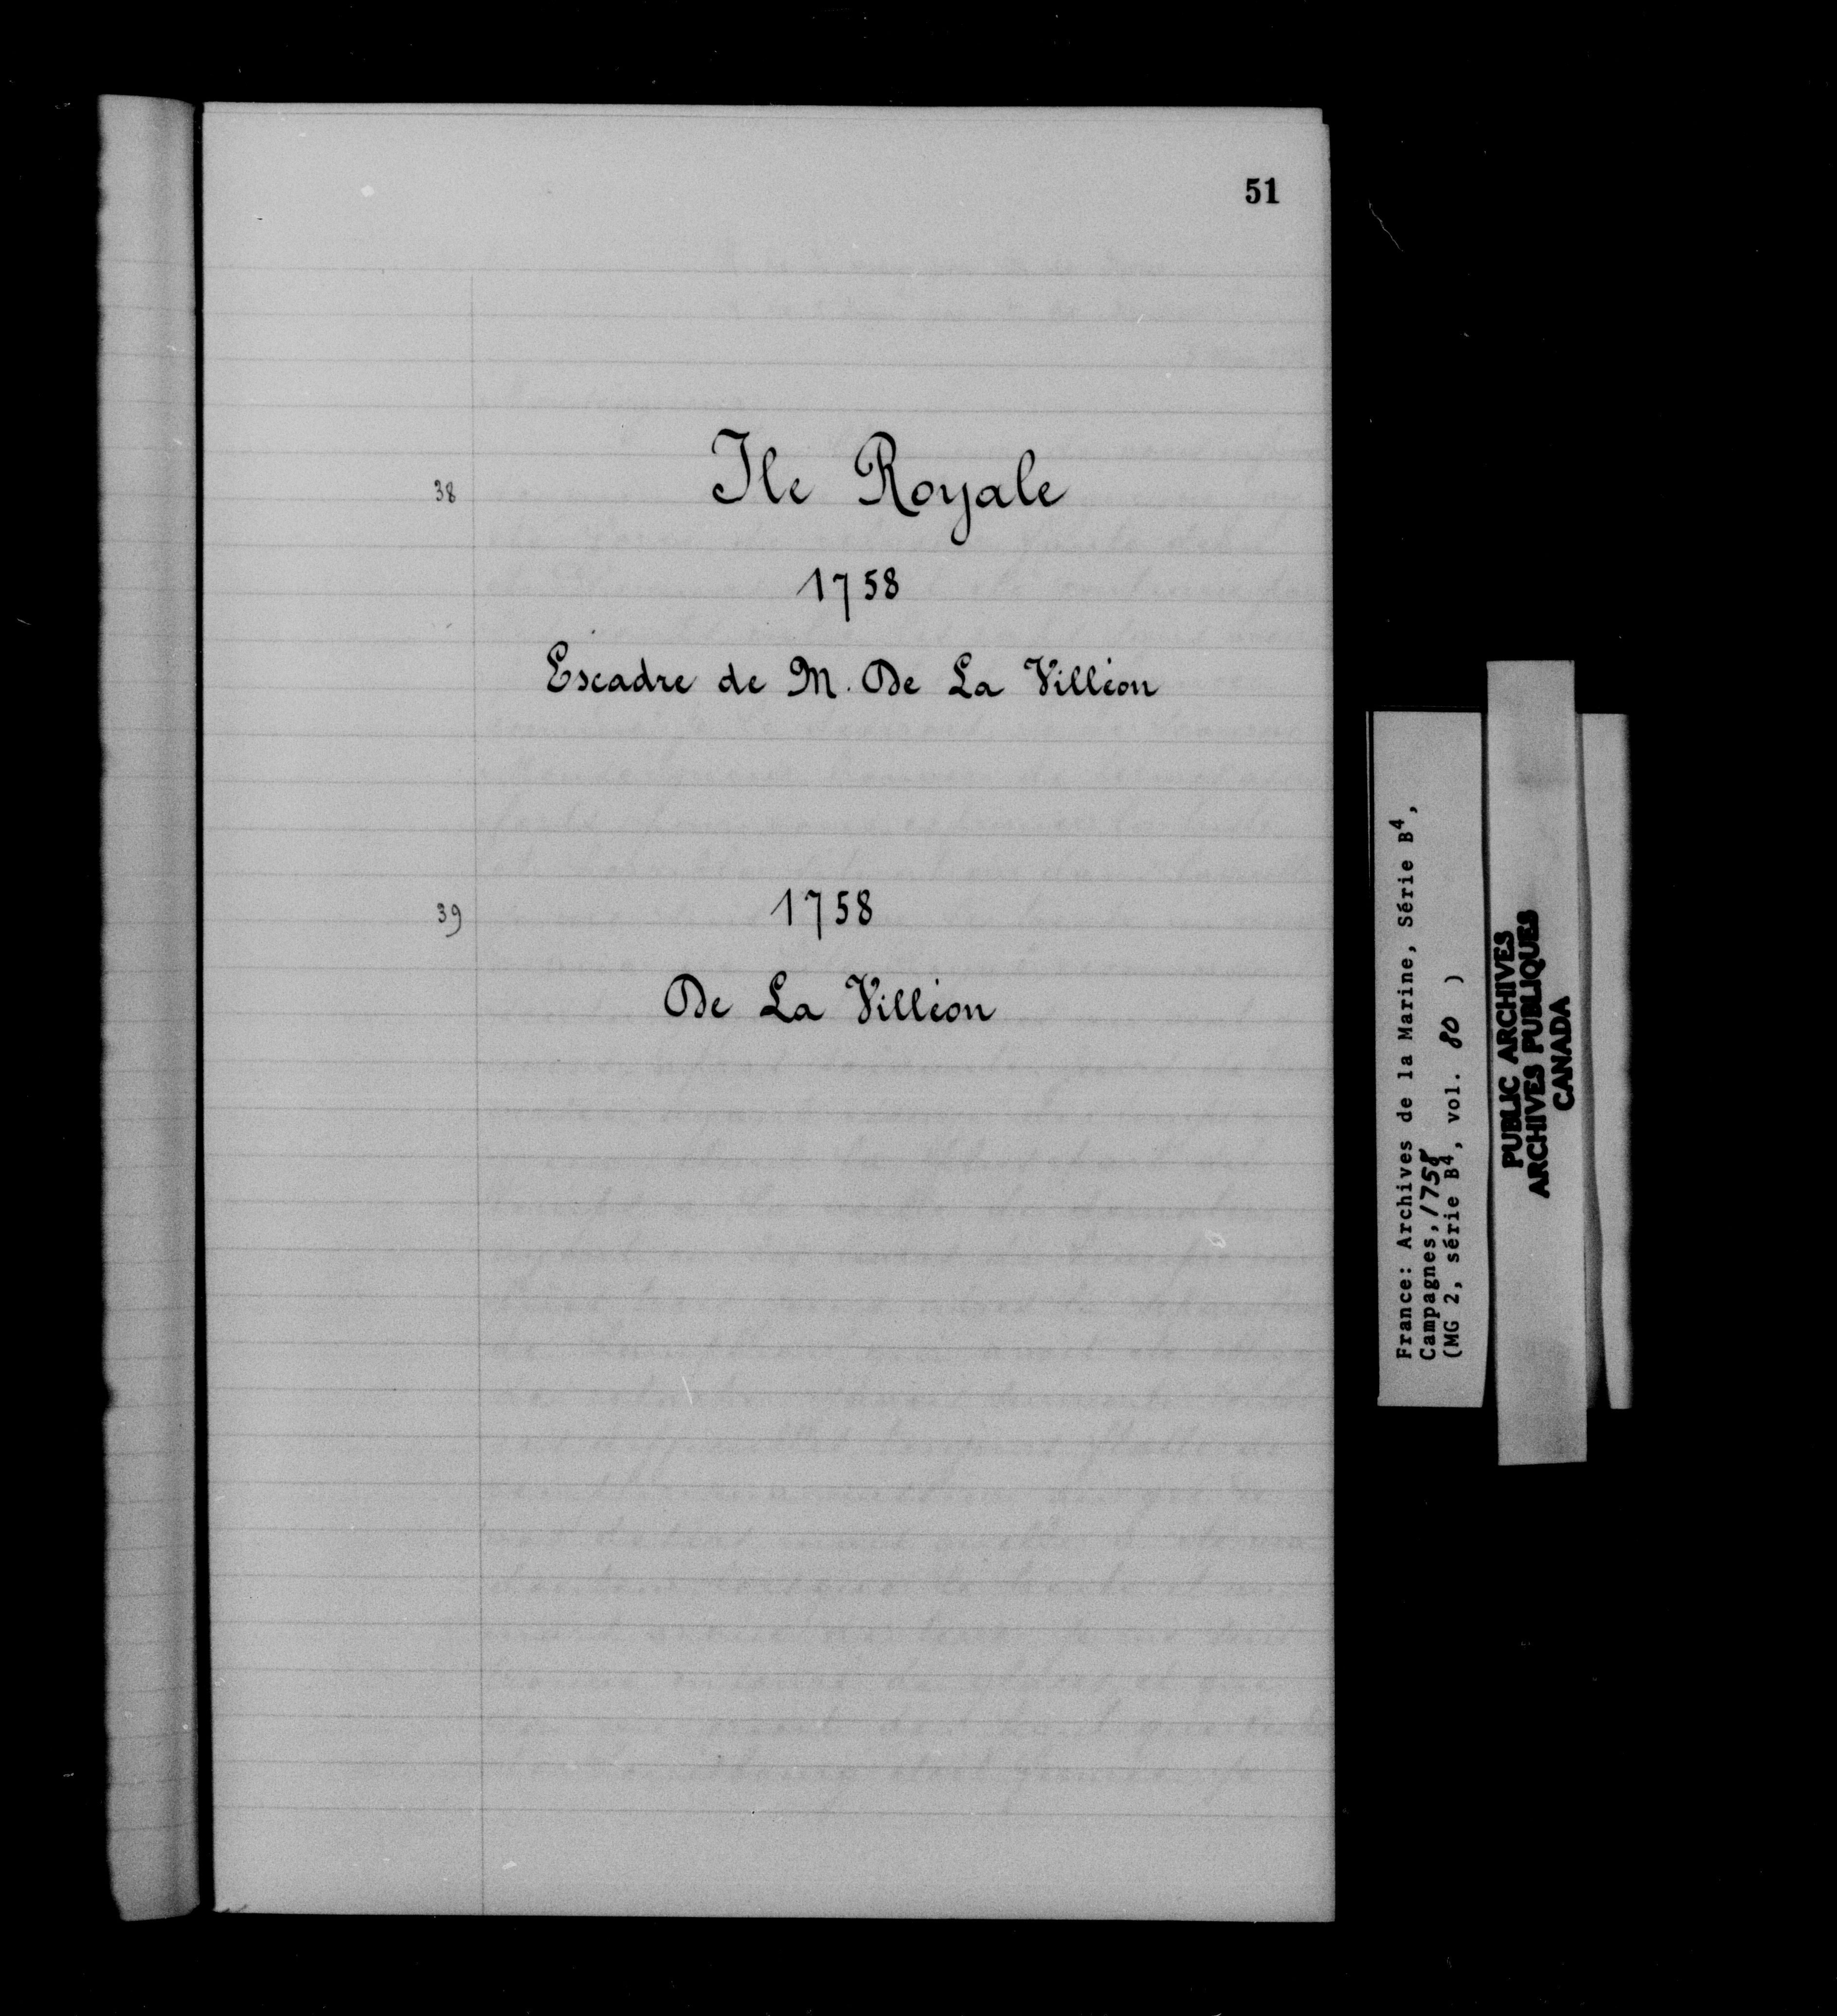 51
38 Ile Royale
1758
Escadre de M. De La Villéon
39 1758
De La Villéon
France: Archives de la Marine, Série B4,
Campagnes, 1758
(MG 2, série B4, vol. 80 )
PUBLIC ARCHIVES
ARCHIVES PUBLIQUES
CANADA